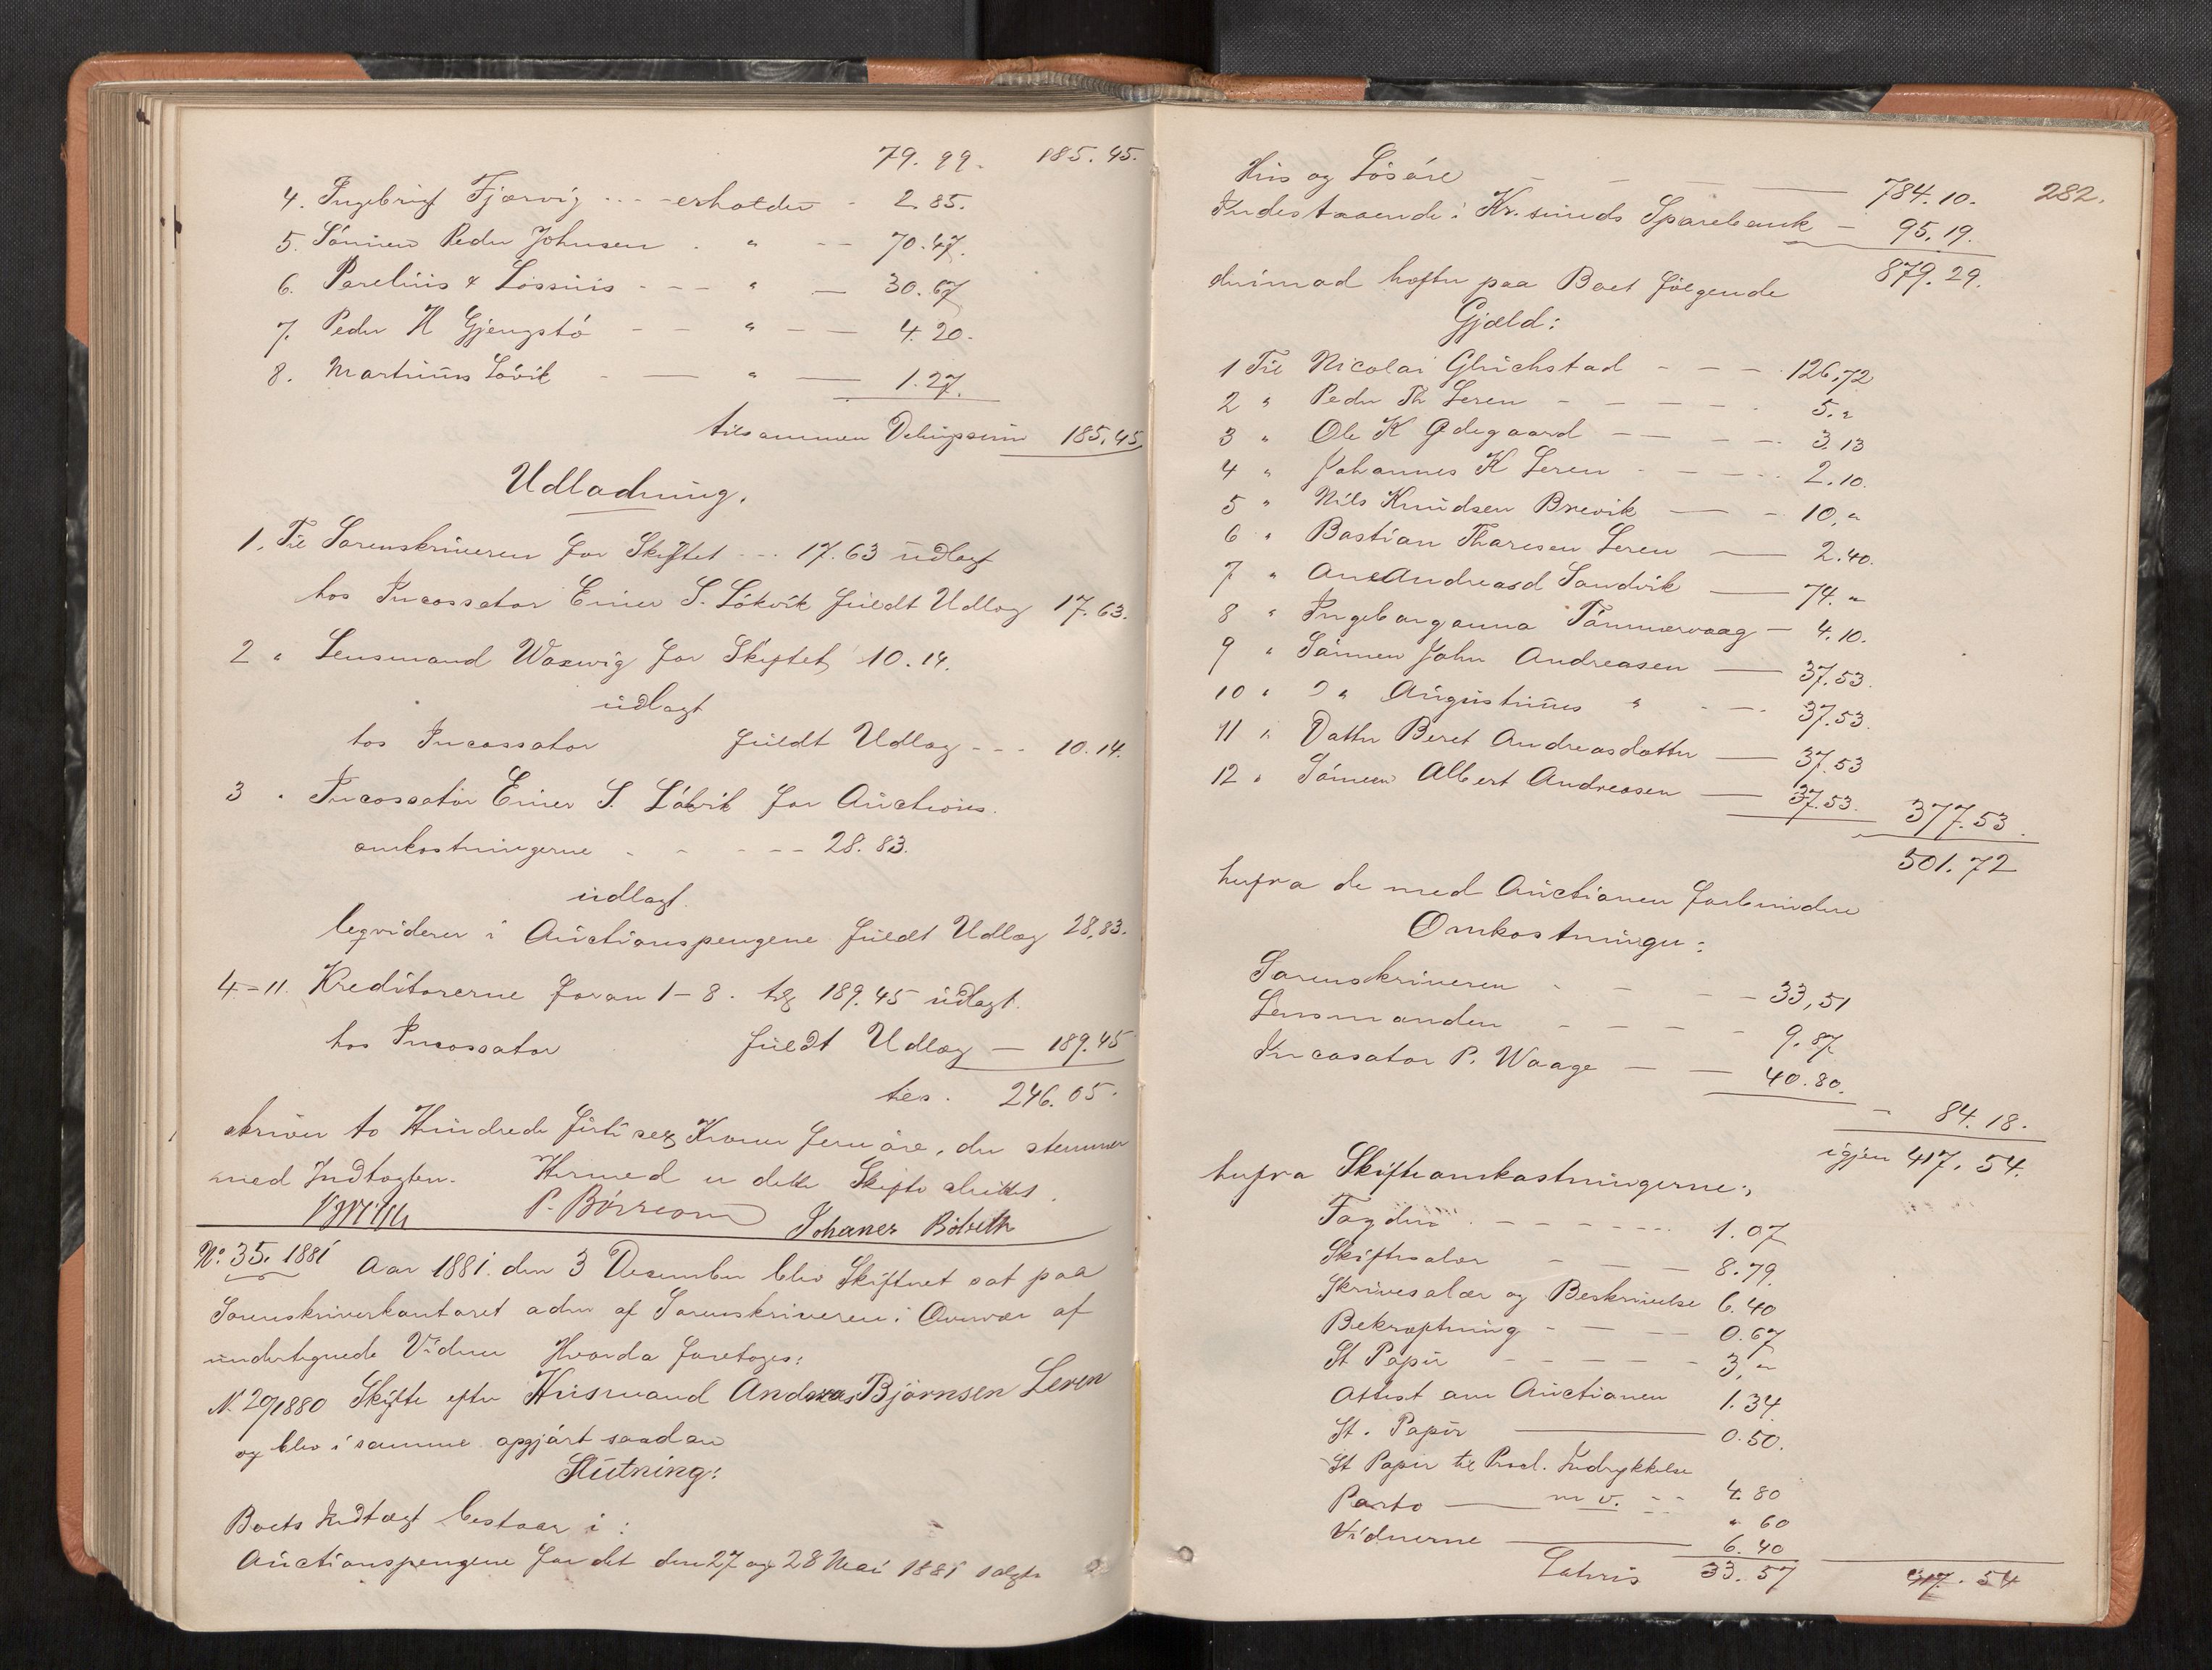 79.99. 185.45.
4. Ingebrigt Fjærvig - - - erholder - 2.85.
5. Sönnen Peder Johnsen . " - - 70.47.
6. Parelius & Lossius - - - " — 30.67
7. Peder H Gjengstö - - " - — 4.20.
8. Martinus Lövik - — " — 1.27.
tilsammen Debipsum 185.45.
Udlodning.
1, Til Sorenskriveren for Skiftet - - - 17.63 udlagt
hos Incassator Einer S. Lökvik fuldt Udlæg 17.63.
2 " Lensmand Waxwig for Skiftet 10.14.
udlagt
hos Incassator fuldt Udlæg - - - 10.14.
3 " Incassator Einer S. Lökvik for Auctions
omkostningerne - - - - - 28.83.
udlagt.
leqviderer i Auctionspengene fuldt Udlæg 28,83.
4-11. Kreditorerne foran 1-8. tils 189.45 udlagt.
hos Incassator fuldt Udlæg — 189.45
tils. 246.05.
skriver to Hundrede förti sex Kroner fem öre, der stemmer
med Indtægten. Hermed er dette Skifte sluttet.
P. Börresen Johanes Bölseth
No. 35. 1881 Aar 1881. den 3 December blev Skifteret sat paa
Sorenskriverkontoret adm af Sorenskriveren i Overvær af
undertegnede Vidner Hvorda foretoges:
N. 29/1880 Skifte efter Husmand Andreas Björnsen Leren
og blev i samme opgjørt saadan
Slutning:
Boets Indtægt bestaar i:
Auctionspengene for det den 27 og 28 Mai 1881 solgte
282.
Hus og Lösöre - - - — 784.10.
Indestaaende i Kr.sunds Sparebank - 95.19.
879.29.
hvimod hefter paa Boet fölgende
Gjæld:
1 Til Nicolai Glückstad - - - 126,72
2 " Peder Th Leren - - - - - 5."
3 " Ole K Ødegaard - - - - 3.13
4 " Johannes K Leren - - - - 2.10.
5 " Nils Knudsen Brevik — - 10,"
6 " Bastian Thoresen Leren — 2.40.
7 " Ane Andreasd Sandvik — 74."
8 " Ingeborganna Tömmervaag — 4.10.
9 " Sönnen John Andreasen — 37.53.
10 " D" Augustinus " - - - 37.53.
11 " Datter Beret Andreasdatter — 37.53
12 " Sönnen Albert Andreasen — 37.53. 377.53.
501.72
herfra de med Auctionen forbundne
Omkostninger:
Sorenskriveren - - - - 33,51
Lensmanden - - - - 9.87
Incasator P. Waage - — 40.80.
- 84.18.
igjen 417.54.
herfra Skifteomkostningerne:
Tagden - - - - - 1.07
Skiftesalær - - - 8.79.
Skrivesalær og Beskrivelse 6.40
Bekræftning - - - - 0.67
St Papir - - - - - 3,"
Attest om Auctionen 1.34.
St. Papir — 0.50.
St Papir til Procl. Indrykkelse
m v. - - 4.80
Porto — - - " 60
Vidnerne — 6.40
Latris 33.57 417.54